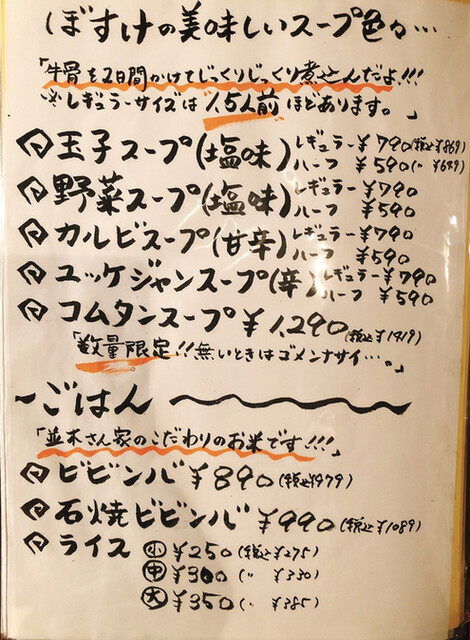 ぼすけの美味しいスープ色々…
「牛骨を2日間かけてじっくりじっくり煮込んだよ!!!
※レギュラーサイズは1.5人前ほどあります。」
玉子スープ(塩味) レギュラー¥790(税込¥869)
ハーフ ¥590(〃 ¥649)
野菜スープ(塩味) レギュラー¥790
ハーフ ¥590
カルビスープ(甘辛) レギュラー¥790
ハーフ ¥590
ユッケジャンスープ(辛) レギュラー¥790
ハーフ ¥590
コムタンスープ ¥1,290(税込¥1419)
「数量限定!!無いときはゴメンナサイ…。」
~ごはん
「並木さん家のこだわりのお米です!!!」
ビビンバ ¥890(税込¥979)
石焼ビビンバ ¥990(税込¥1089)
ライス 小 ¥250(税込¥275)
中 ¥300(〃 ¥330)
大 ¥350(〃 ¥385)